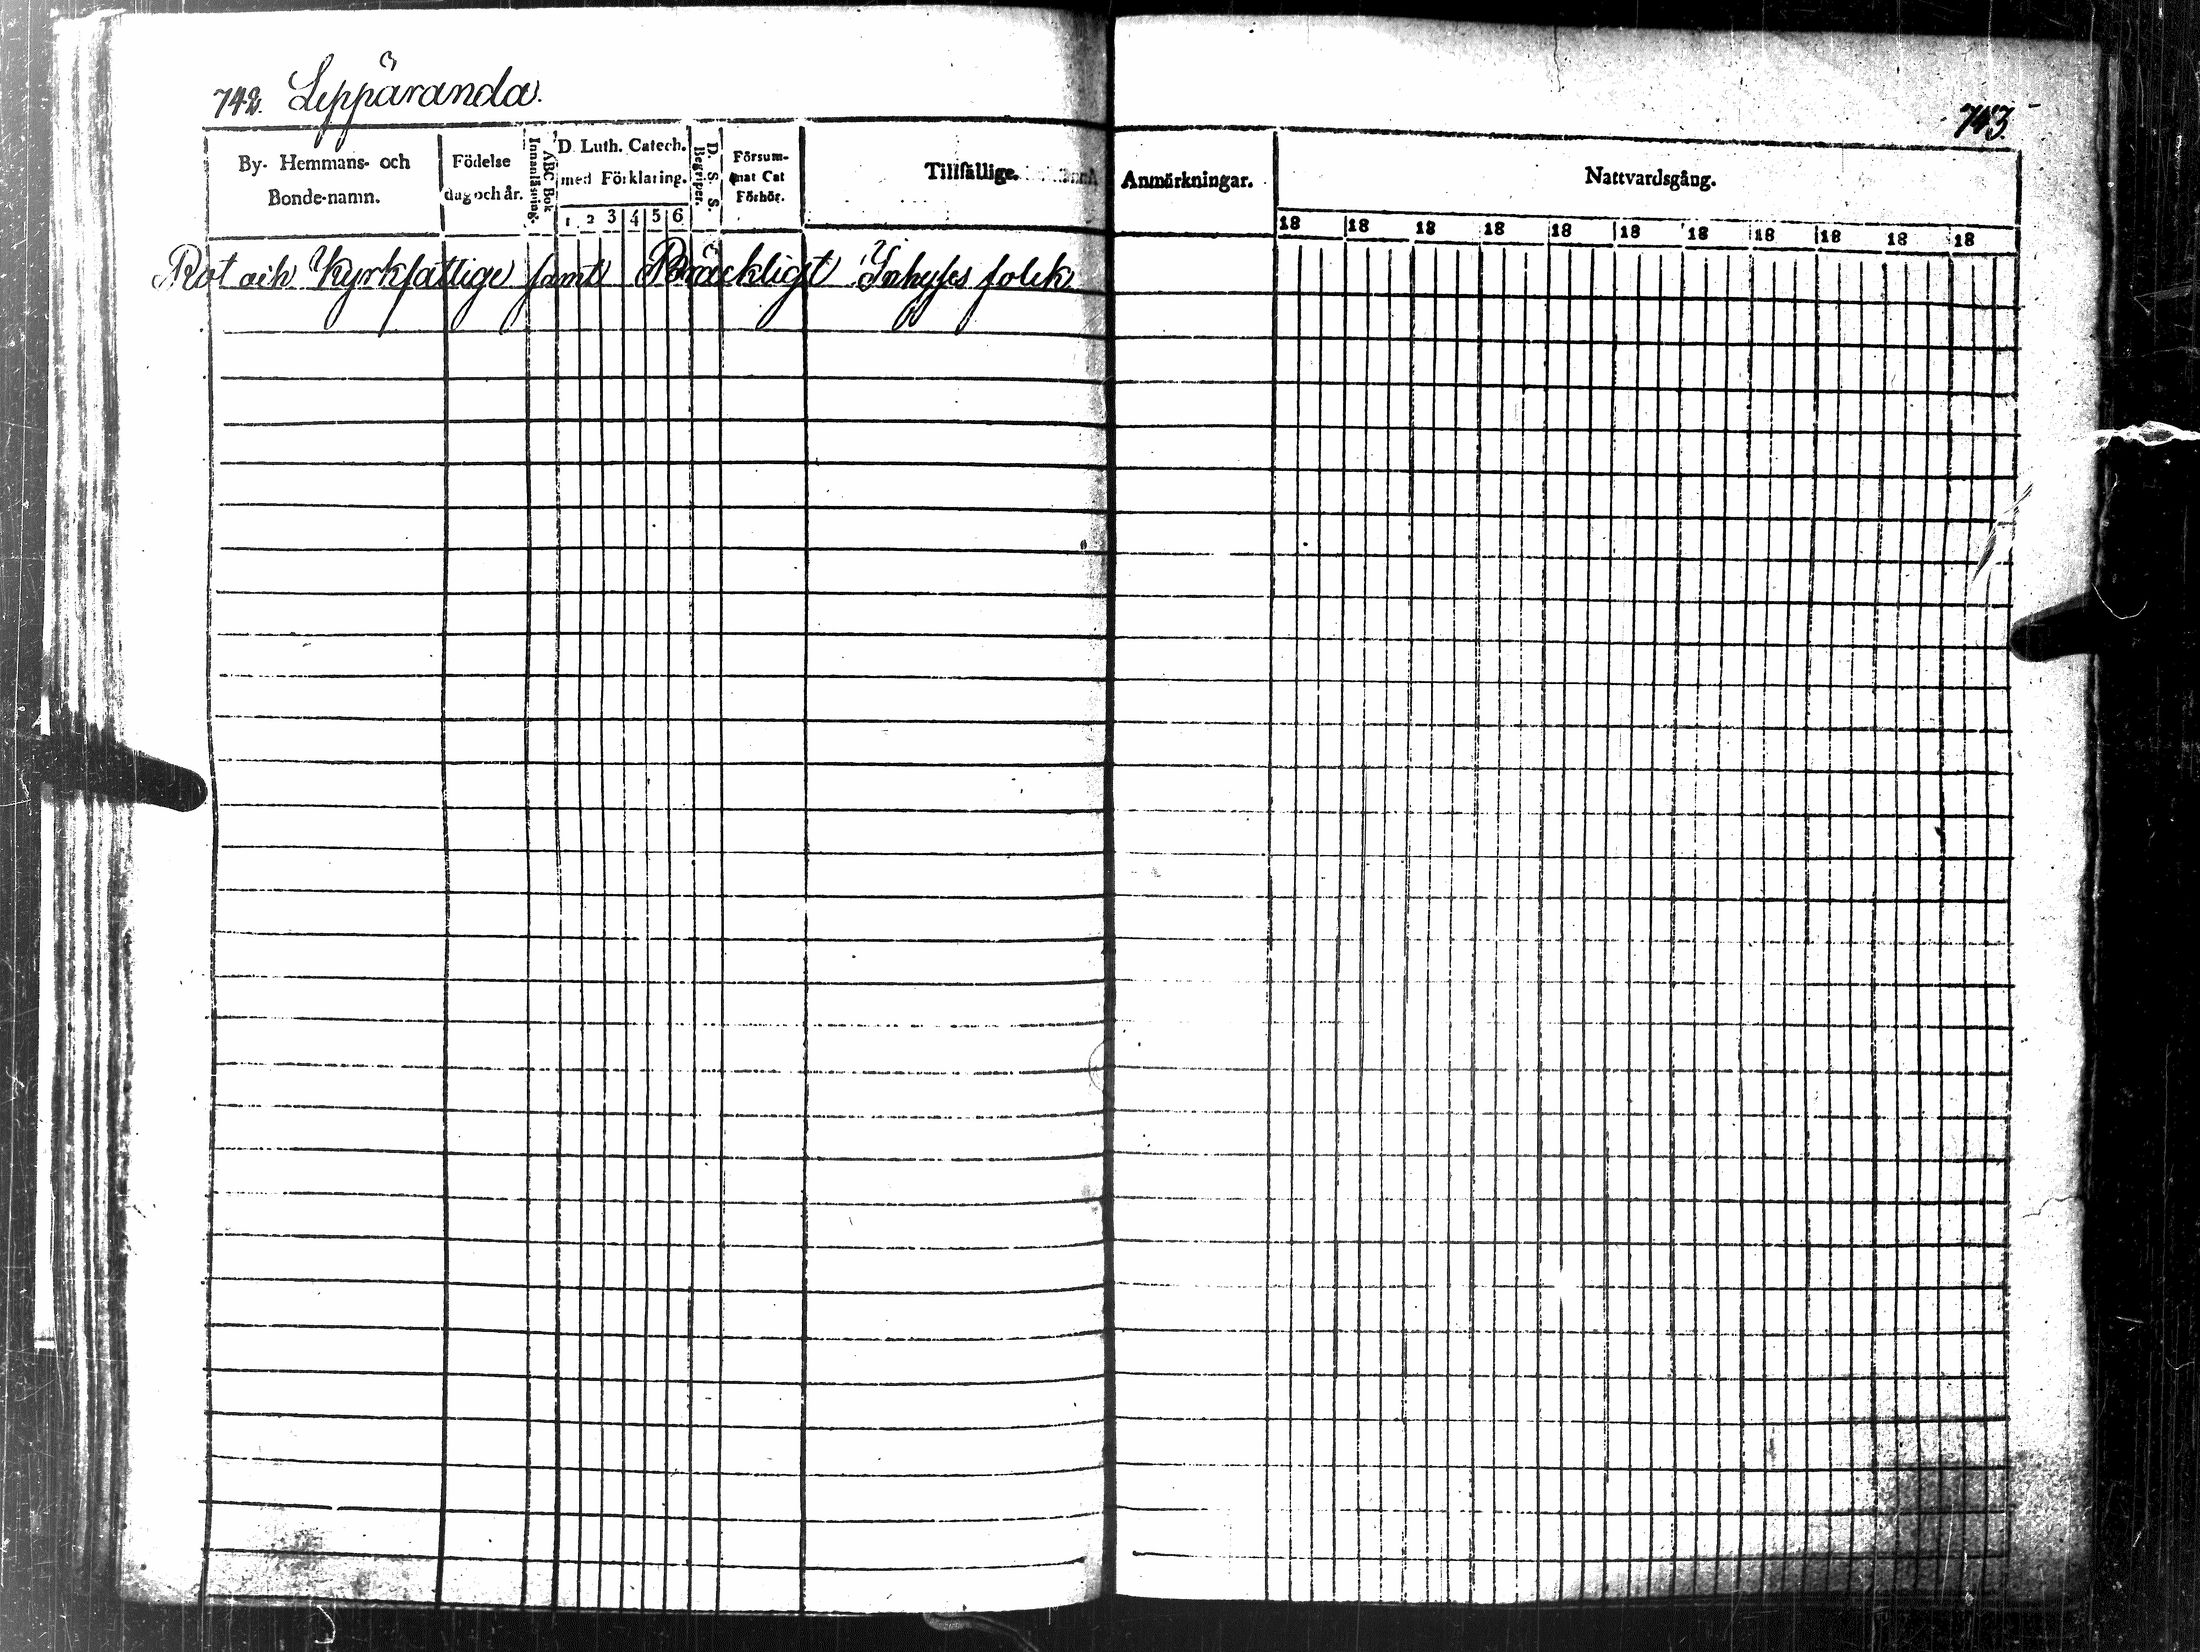 742. Leppäranda.
743.
By- Hemmans- och Bonde-namn.
Födelse dag och år.
Innanläsning.
ABC Bok
D. Luth. Catech. med Förklaring.
1 2 3 4 5 6
D. S. S.
Begriper.
Försum- mat Cat Förhör.
Tillfällige.
Anmärkningar.
Nattvardsgång.
18 18 18 18 18 18 18 18 18 18 18
Rot och Kyrkfattige samt Bräckligt Inhyses folck